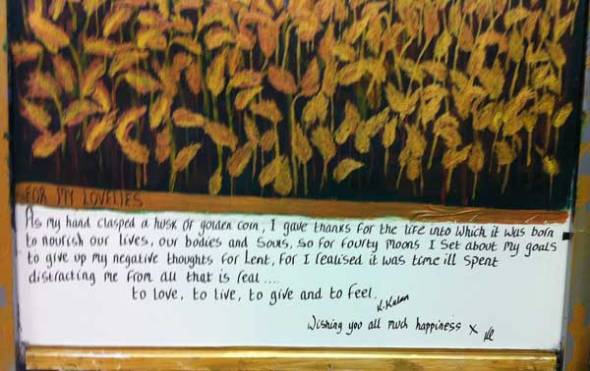 FOR MY LOVELIES
As my hand clasped a husk of golden corn, I gave thanks for the life into which it was born
to nourish our lives, our bodies and Souls, so for fourty moons I set about my goals
to give up my negative thoughts for Lent, for I realised it was time ill spent
distracting me from all that is real ....
to love, to live, to give and to feel.
Wishing you all much happiness x